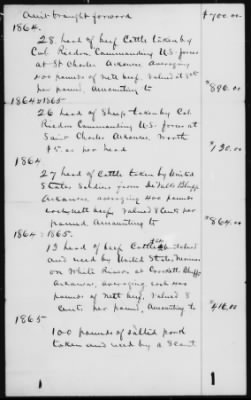 Amt brought forward $700.00
1864.
28 head of beef Cattle taken by
Col Commanding U.S. forces
at St Charles Arkansas averaging
400 pounds of nett beef, Valued at 8 cts
per pound, Amounting to $896.00
1864 & 1865
26 head of Sheep taken by Col
Commanding U.S. forces at
Saint Charles Arkansas Worth
$5.00 per head $130.00
1864
27 head of Cattle taken by United
States Soldiers from Bluff
Arkansas, averaging 400 pounds
each nett beef, Valued 8 Cents per
pound, Amounting to $864.00
1864 & 1865.
13 head of beef Cattle taken
and used by United States
on White River at Crockett Bluff
Arkansas, averaging each 400
pounds of nett beef, Valued 8
Cents per pound, Amounting to $416.00
1865
100 pounds of salted pork
taken and used by a Scout
1
1